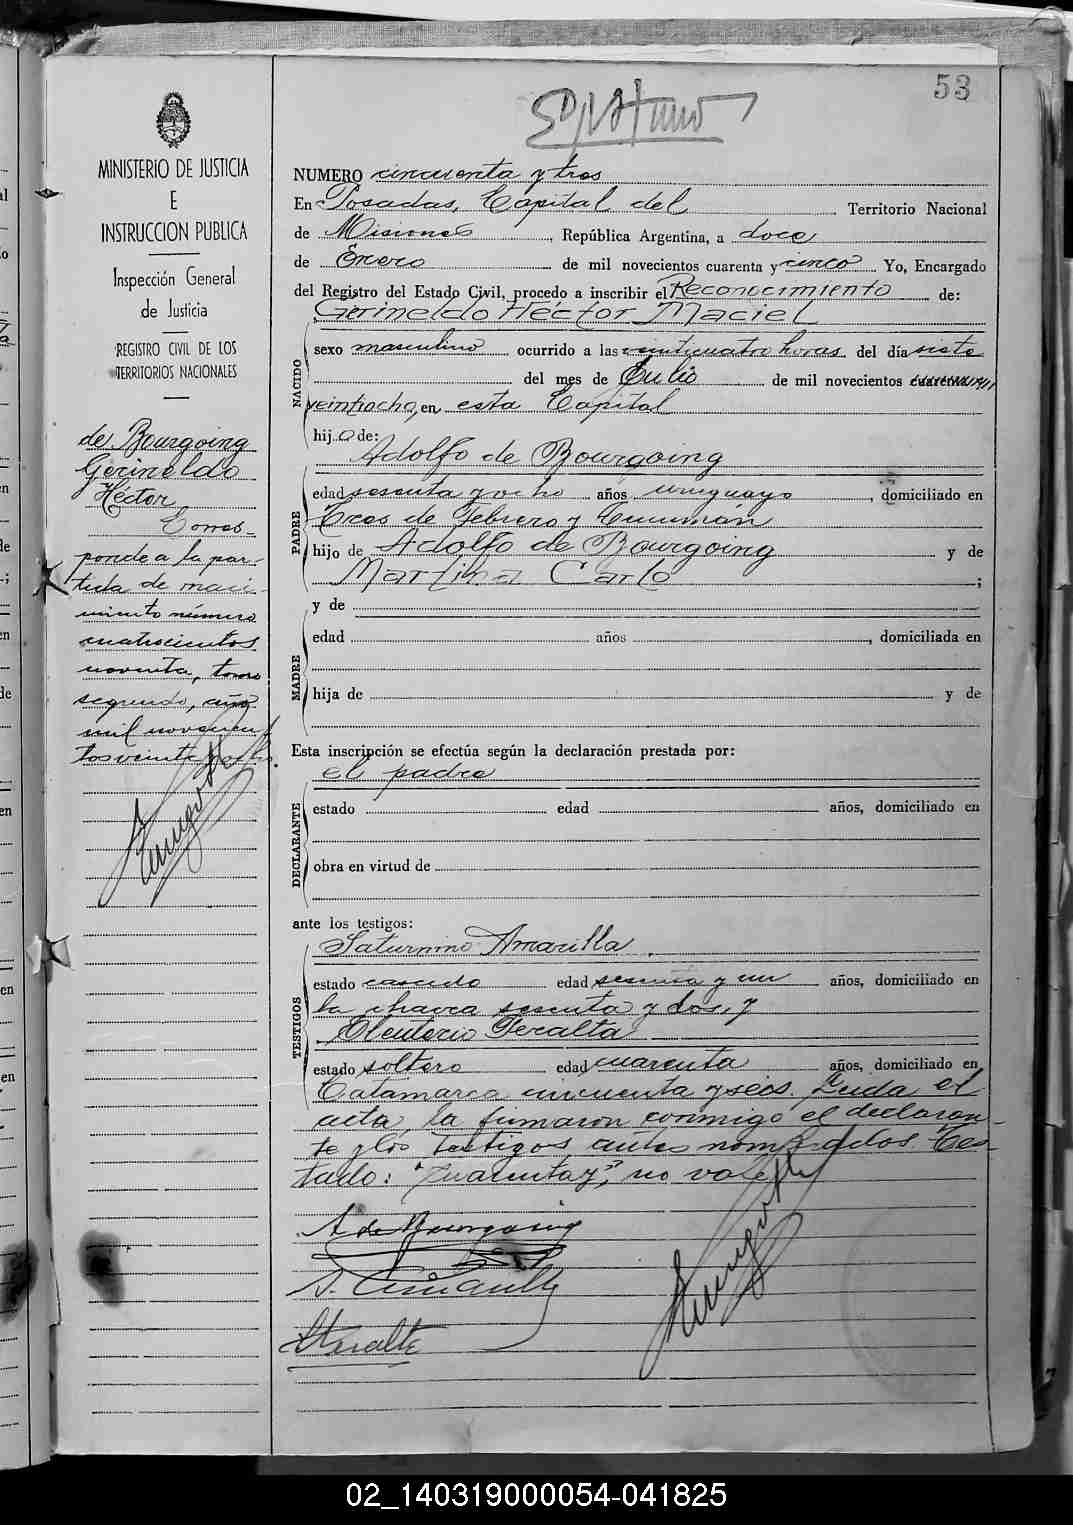 53
NUMERO cincuenta y tres
En Posadas, Capital del Territorio Nacional
de Misiones, República Argentina, a doce
de Enero de mil novecientos cuarenta y cinco Yo, Encargado
del Registro del Estado Civil, procedo a inscribir el Reconocimiento de:
Gerineldo Héctor Maciel
NACIDO
sexo masculino ocurrido a las veinticuatro horas del día siete
del mes de Julio de mil novecientos
veintiocho, en esta Capital
hijo de:
Adolfo de Bourgoing
PADRE
edad sesenta y ocho años uruguayo, domiciliado en
Tres de Febrero y Tucumán
hijo de Adolfo de Bourgoing y de
Martina Carlo;
y de
MADRE
edad años, domiciliada en
hija de y de
Esta inscripción se efectúa según la declaración prestada por:
el padre
DECLARANTE
estado edad años, domiciliado en
obra en virtud de
ante los testigos:
Saturnino Amarilla
TESTIGOS
estado casado edad sesenta y un años, domiciliado en
la chacra sesenta y dos, y
Eleuterio Peralta
estado soltero edad cuarenta años, domiciliado en
Catamarca cincuenta y seis. Leida el
acta, la firmaron conmigo el declaran-
te y los testigos antes nombrados. Tes-
tado: "cuarenta y", no vale
A de Bourgoing
MINISTERIO DE JUSTICIA
E
INSTRUCCION PUBLICA
Inspección General
de Justicia
REGISTRO CIVIL DE LOS
TERRITORIOS NACIONALES
de Bourgoing
Gerineldo
Héctor
Corres-
ponde a la par-
tida de naci-
miento número
cuatrocientos
noventa, tomo
segundo, año
mil novecien
tos veinte y ocho.
02_140319000054-041825